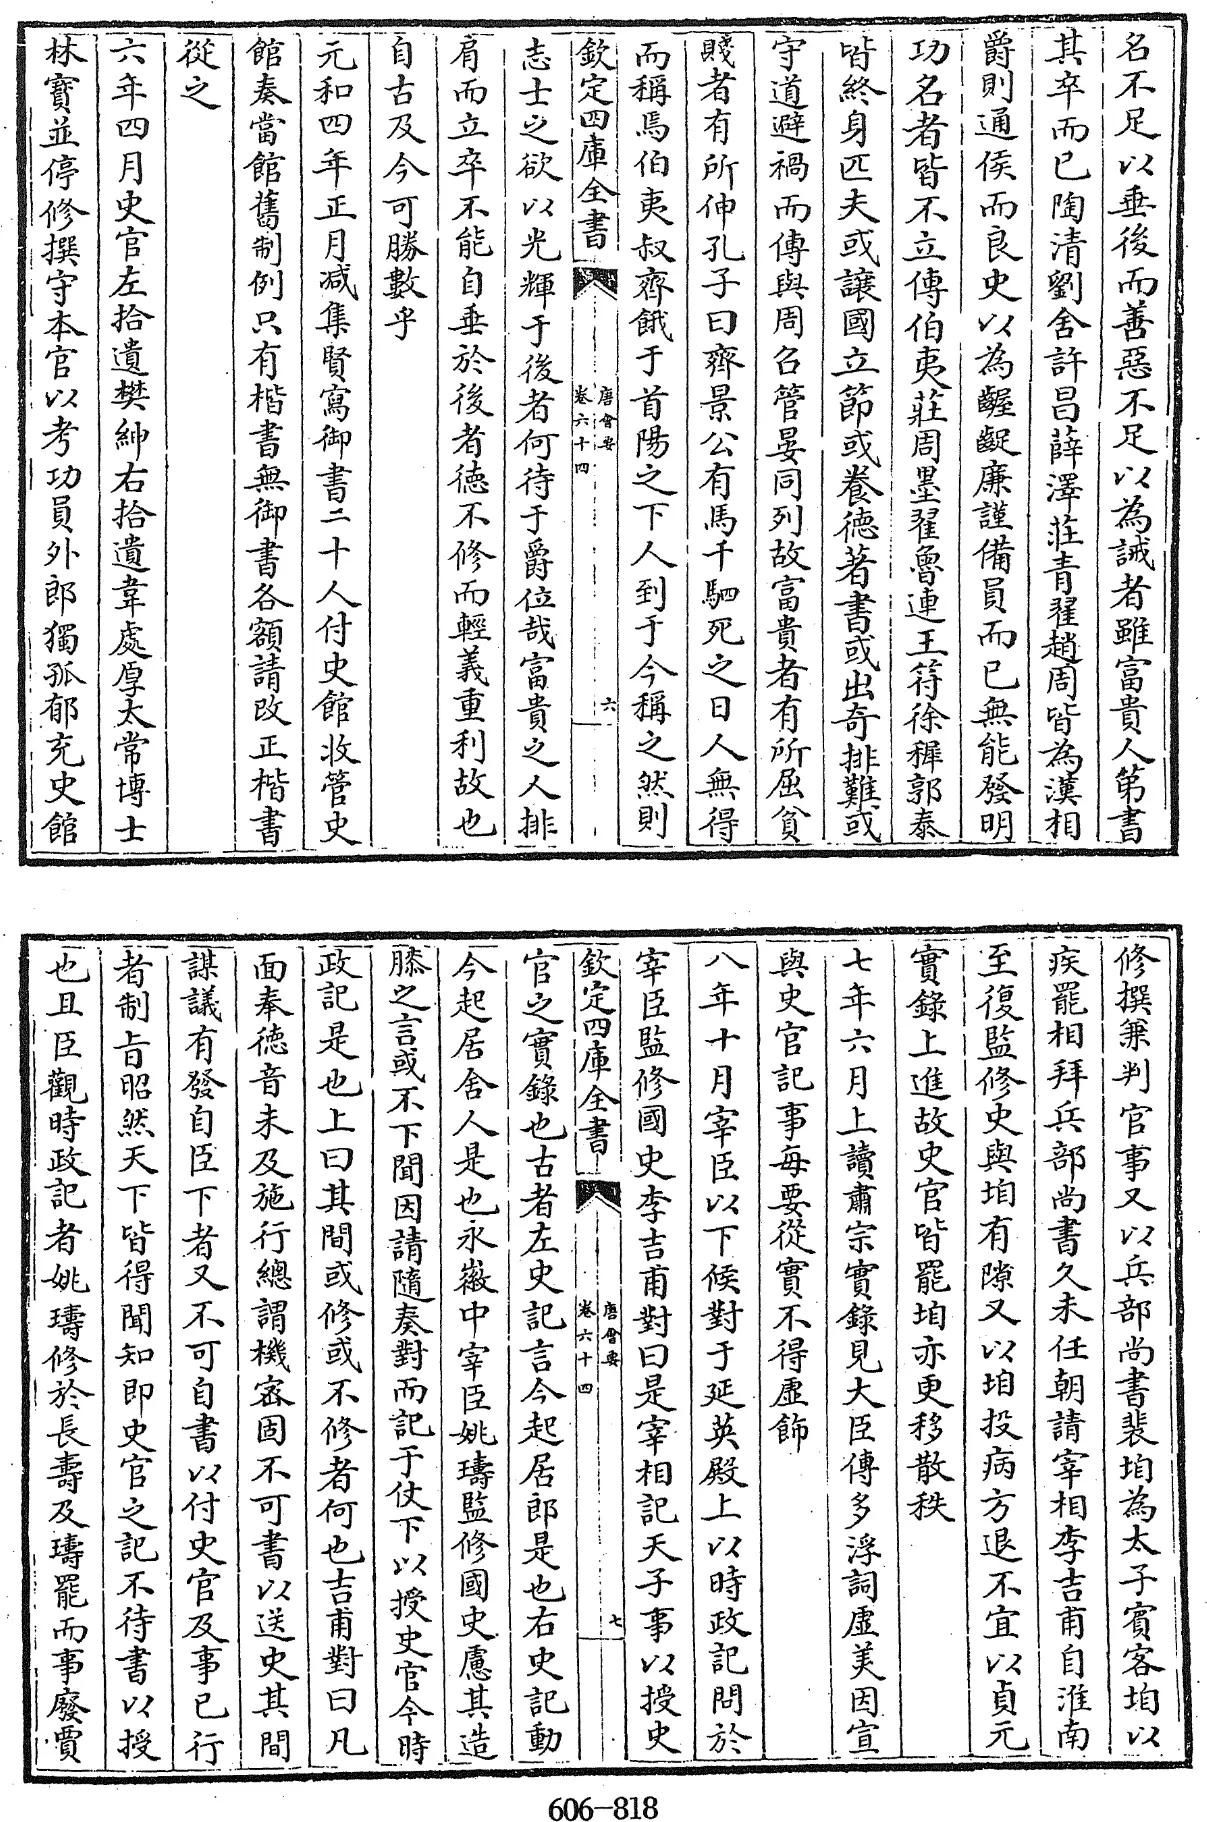 名不足以垂後而善惡不足以為誡者雖富貴人第書
其卒而已陶清劉舍許昌薛澤莊青翟趙周皆為漢相
爵則通侯而良史以為齷齪廉謹備員而已無能發明
功名者皆不立傳伯夷莊周墨翟魯連王符徐穉郭泰
皆終身匹夫或讓國立節或養德著書或出奇排難或
守道避禍而傳與周召管晏同列故富貴者有所屈貧
賤者有所伸孔子曰齊景公有馬千駟死之日人無得
而稱焉伯夷叔齊餓于首陽之下人到于今稱之然則
欽定四庫全書
唐會要
卷六十四
六
志士之欲以光輝于後者何待于爵位哉富貴之人排
肩而立卒不能自垂於後者德不修而輕義重利故也
自古及今可勝數乎
元和四年正月減集賢寫御書二十人付史館收管史
館奏當館舊制例只有楷書無御書各額請改正楷書
從之
六年四月史官左拾遺樊紳右拾遺韋處厚太常博士
林寶並停修撰守本官以考功員外郎獨孤郁充史館
修撰兼判官事又以兵部尚書裴垍為太子賓客垍以
疾罷相拜兵部尚書久未任朝請宰相李吉甫自淮南
至復監修史與垍有隙又以垍投病方退不宜以貞元
實錄上進故史官皆罷垍亦更移散秩
七年六月上讀肅宗實錄見大臣傳多浮詞虛美因宣
與史官記事每要從實不得虛飾
八年十月宰臣以下候對于延英殿上以時政記問於
宰臣監修國史李吉甫對曰是宰相記天子事以授史
欽定四庫全書
唐會要
卷六十四
七
官之實錄也古者左史記言今起居郎是也右史記動
今起居舍人是也永徽中宰臣姚璹監修國史慮其造
膝之言或不下聞因請隨奏對而記于仗下以授史官今時
政記是也上曰其間或修或不修者何也吉甫對曰凡
面奉德音未及施行總謂機密固不可書以送史其間
謀議有發自臣下者又不可自書以付史官及事已行
者制旨昭然天下皆得聞知即史官之記不待書以授
也且臣觀時政記者姚璹修於長壽及璹罷而事廢賈
606-818